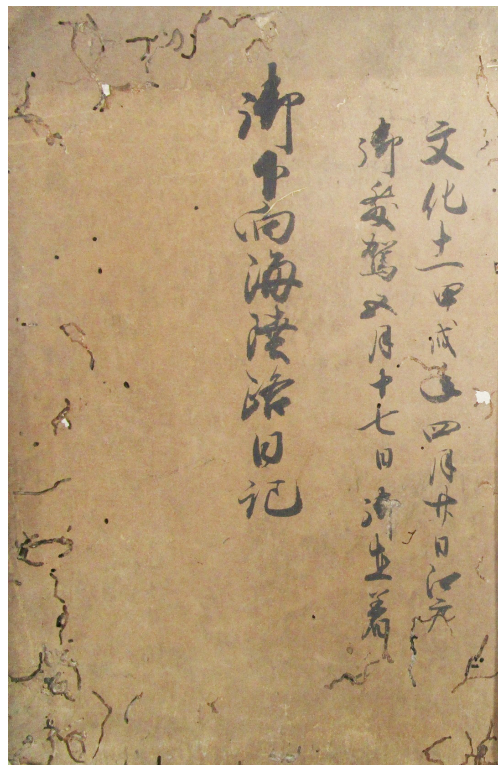 文化十一甲戌年四月廿日江戸
御発駕五月十七日御
御下向海陸路日記